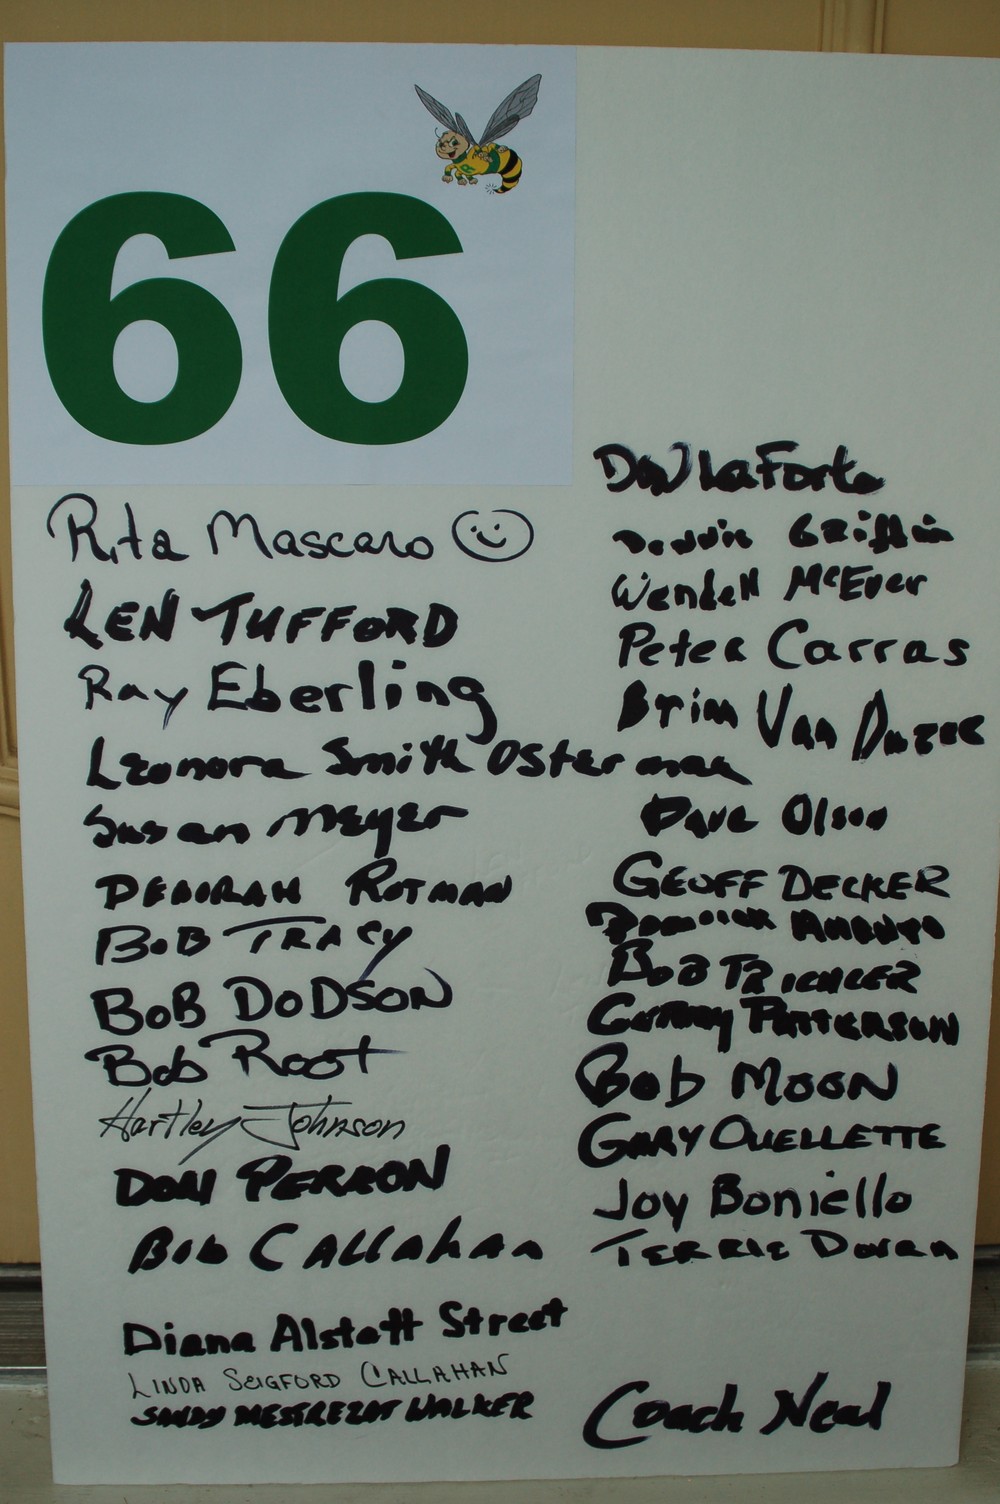 66
Rita Mascaro
LEN TUFFORD
Ray Eberling
Leonora Smith Osterman
Susan Meyer
DEBORAH ROTMAN
BOB TRACY
BOB DODSON
Bob Root
Hartley Johnson
DON PERRON
Bob CALLahan
Diana Alstatt Street
LINDA SEIGFORD CALLAHAN
SANDY MESTREZAT WALKER
Don LaForte
Griffin
Wendell McEver
Peter Carras
Brian Van Duzee
Dave Olson
GEOFF DECKER
BOB
PATTERSON
BOB MOON
GARY OUELLETTE
Joy Boniello
TERRIE Doran
Coach Neal